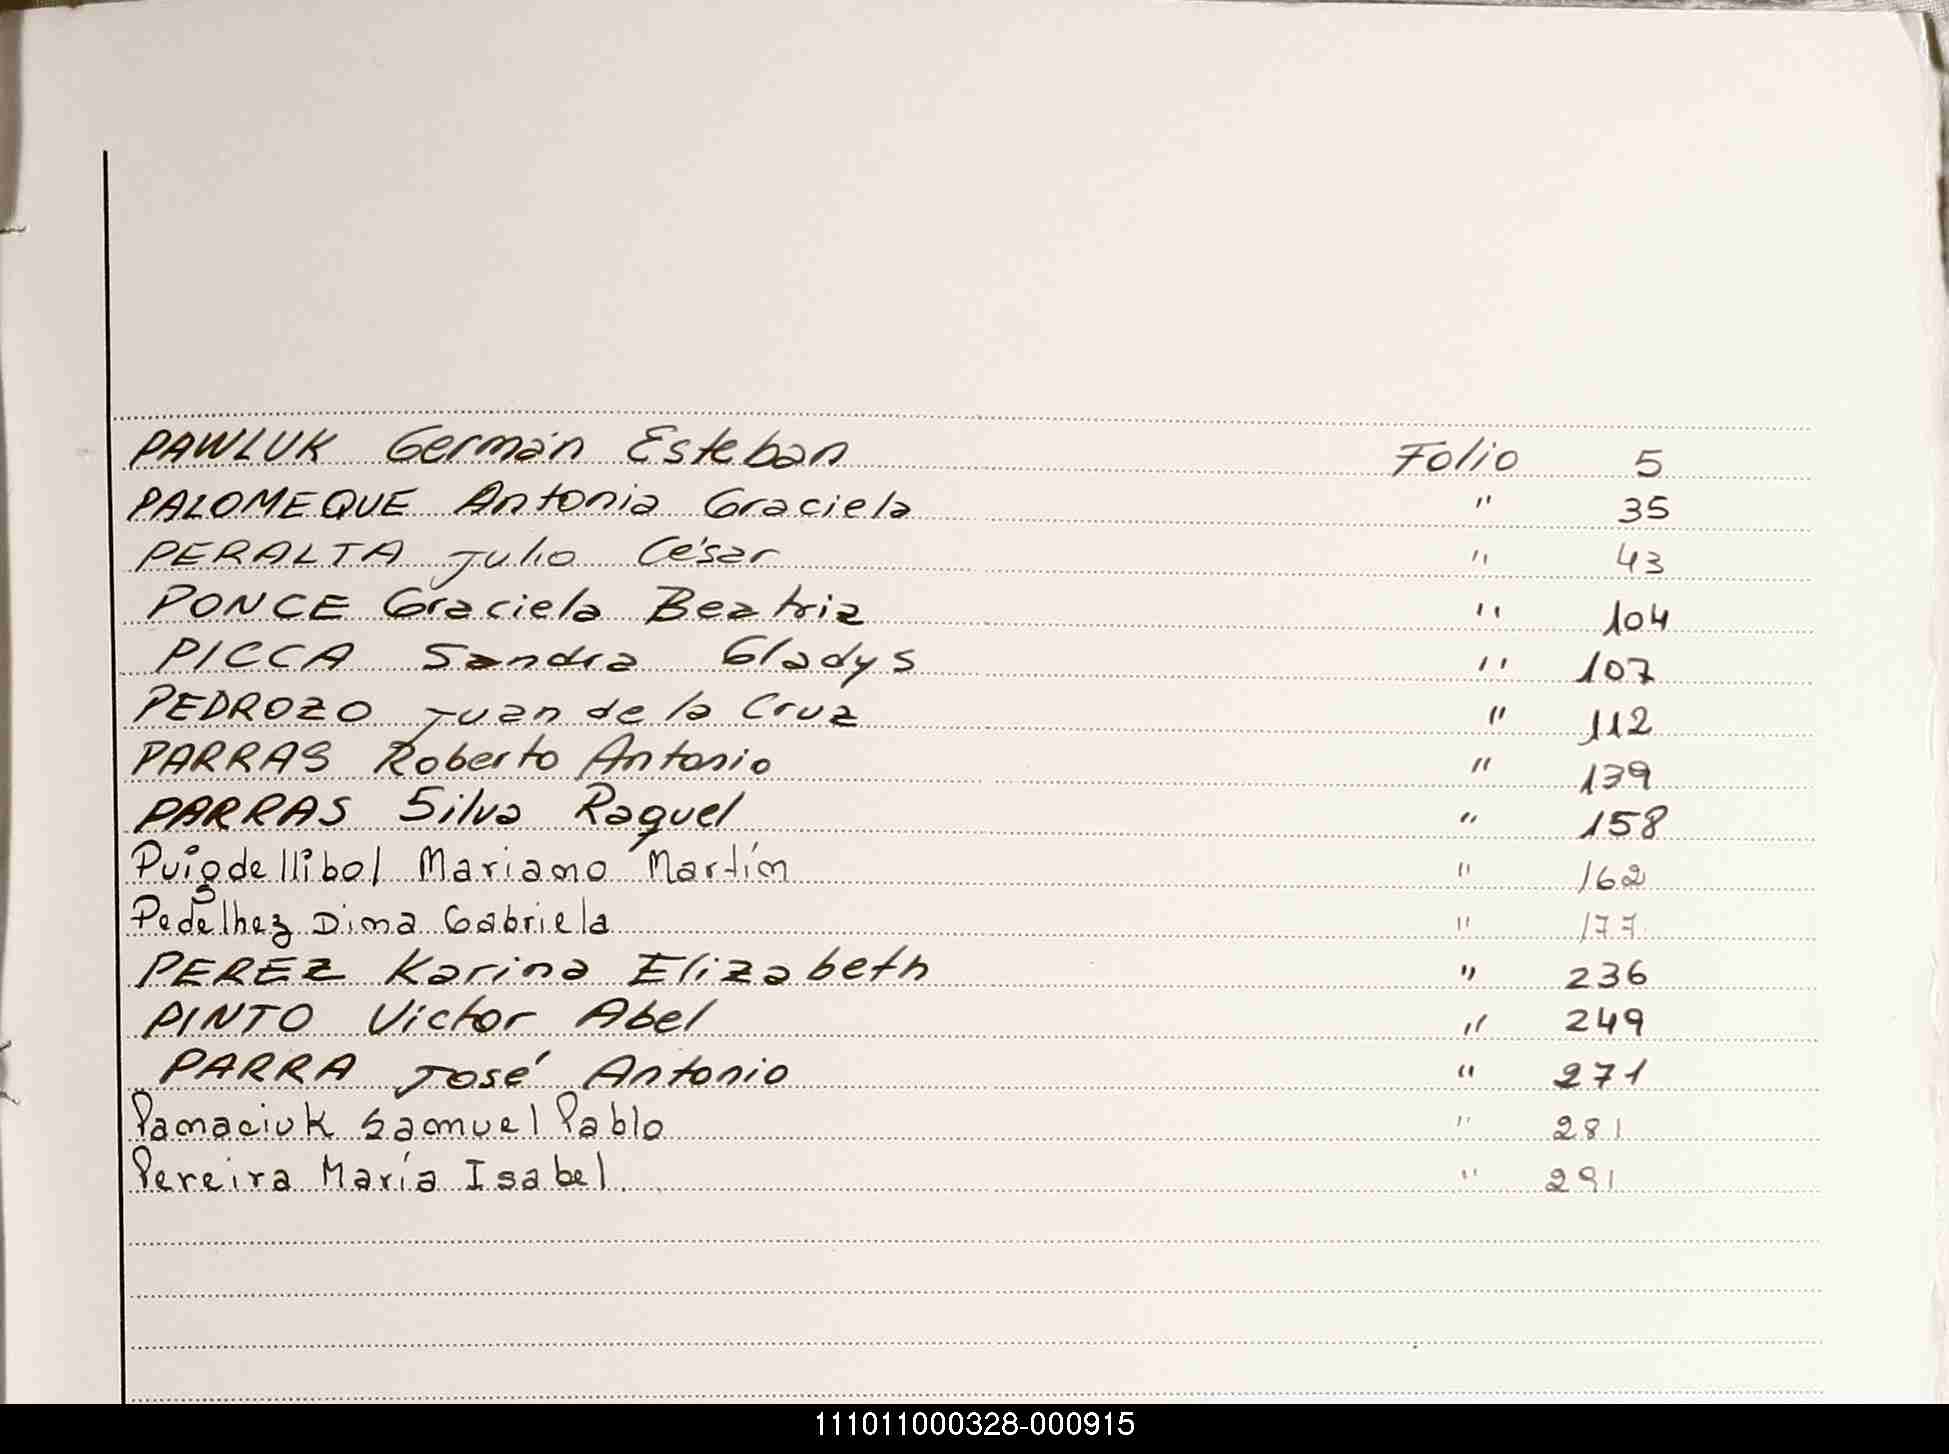 PAWLUK Germán Esteban Folio 5
PALOMEQUE Antonia Graciela " 35
PERALTA Julio César " 43
PONCE Graciela Beatriz " 104
PICCA Sandra Gladys " 107
PEDROZO Juan de la Cruz " 112
PARRAS Roberto Antonio " 139
PARRAS Silva Raquel " 158
Puigdellibol Mariano Martín " 162
Pedelhez Dima Gabriela " 177
PEREZ Karina Elizabeth " 236
PINTO Victor Abel " 249
PARRA José Antonio " 271
Pamaciuk Samuel Pablo " 281
Pereira María Isabel " 291
111011000328-000915